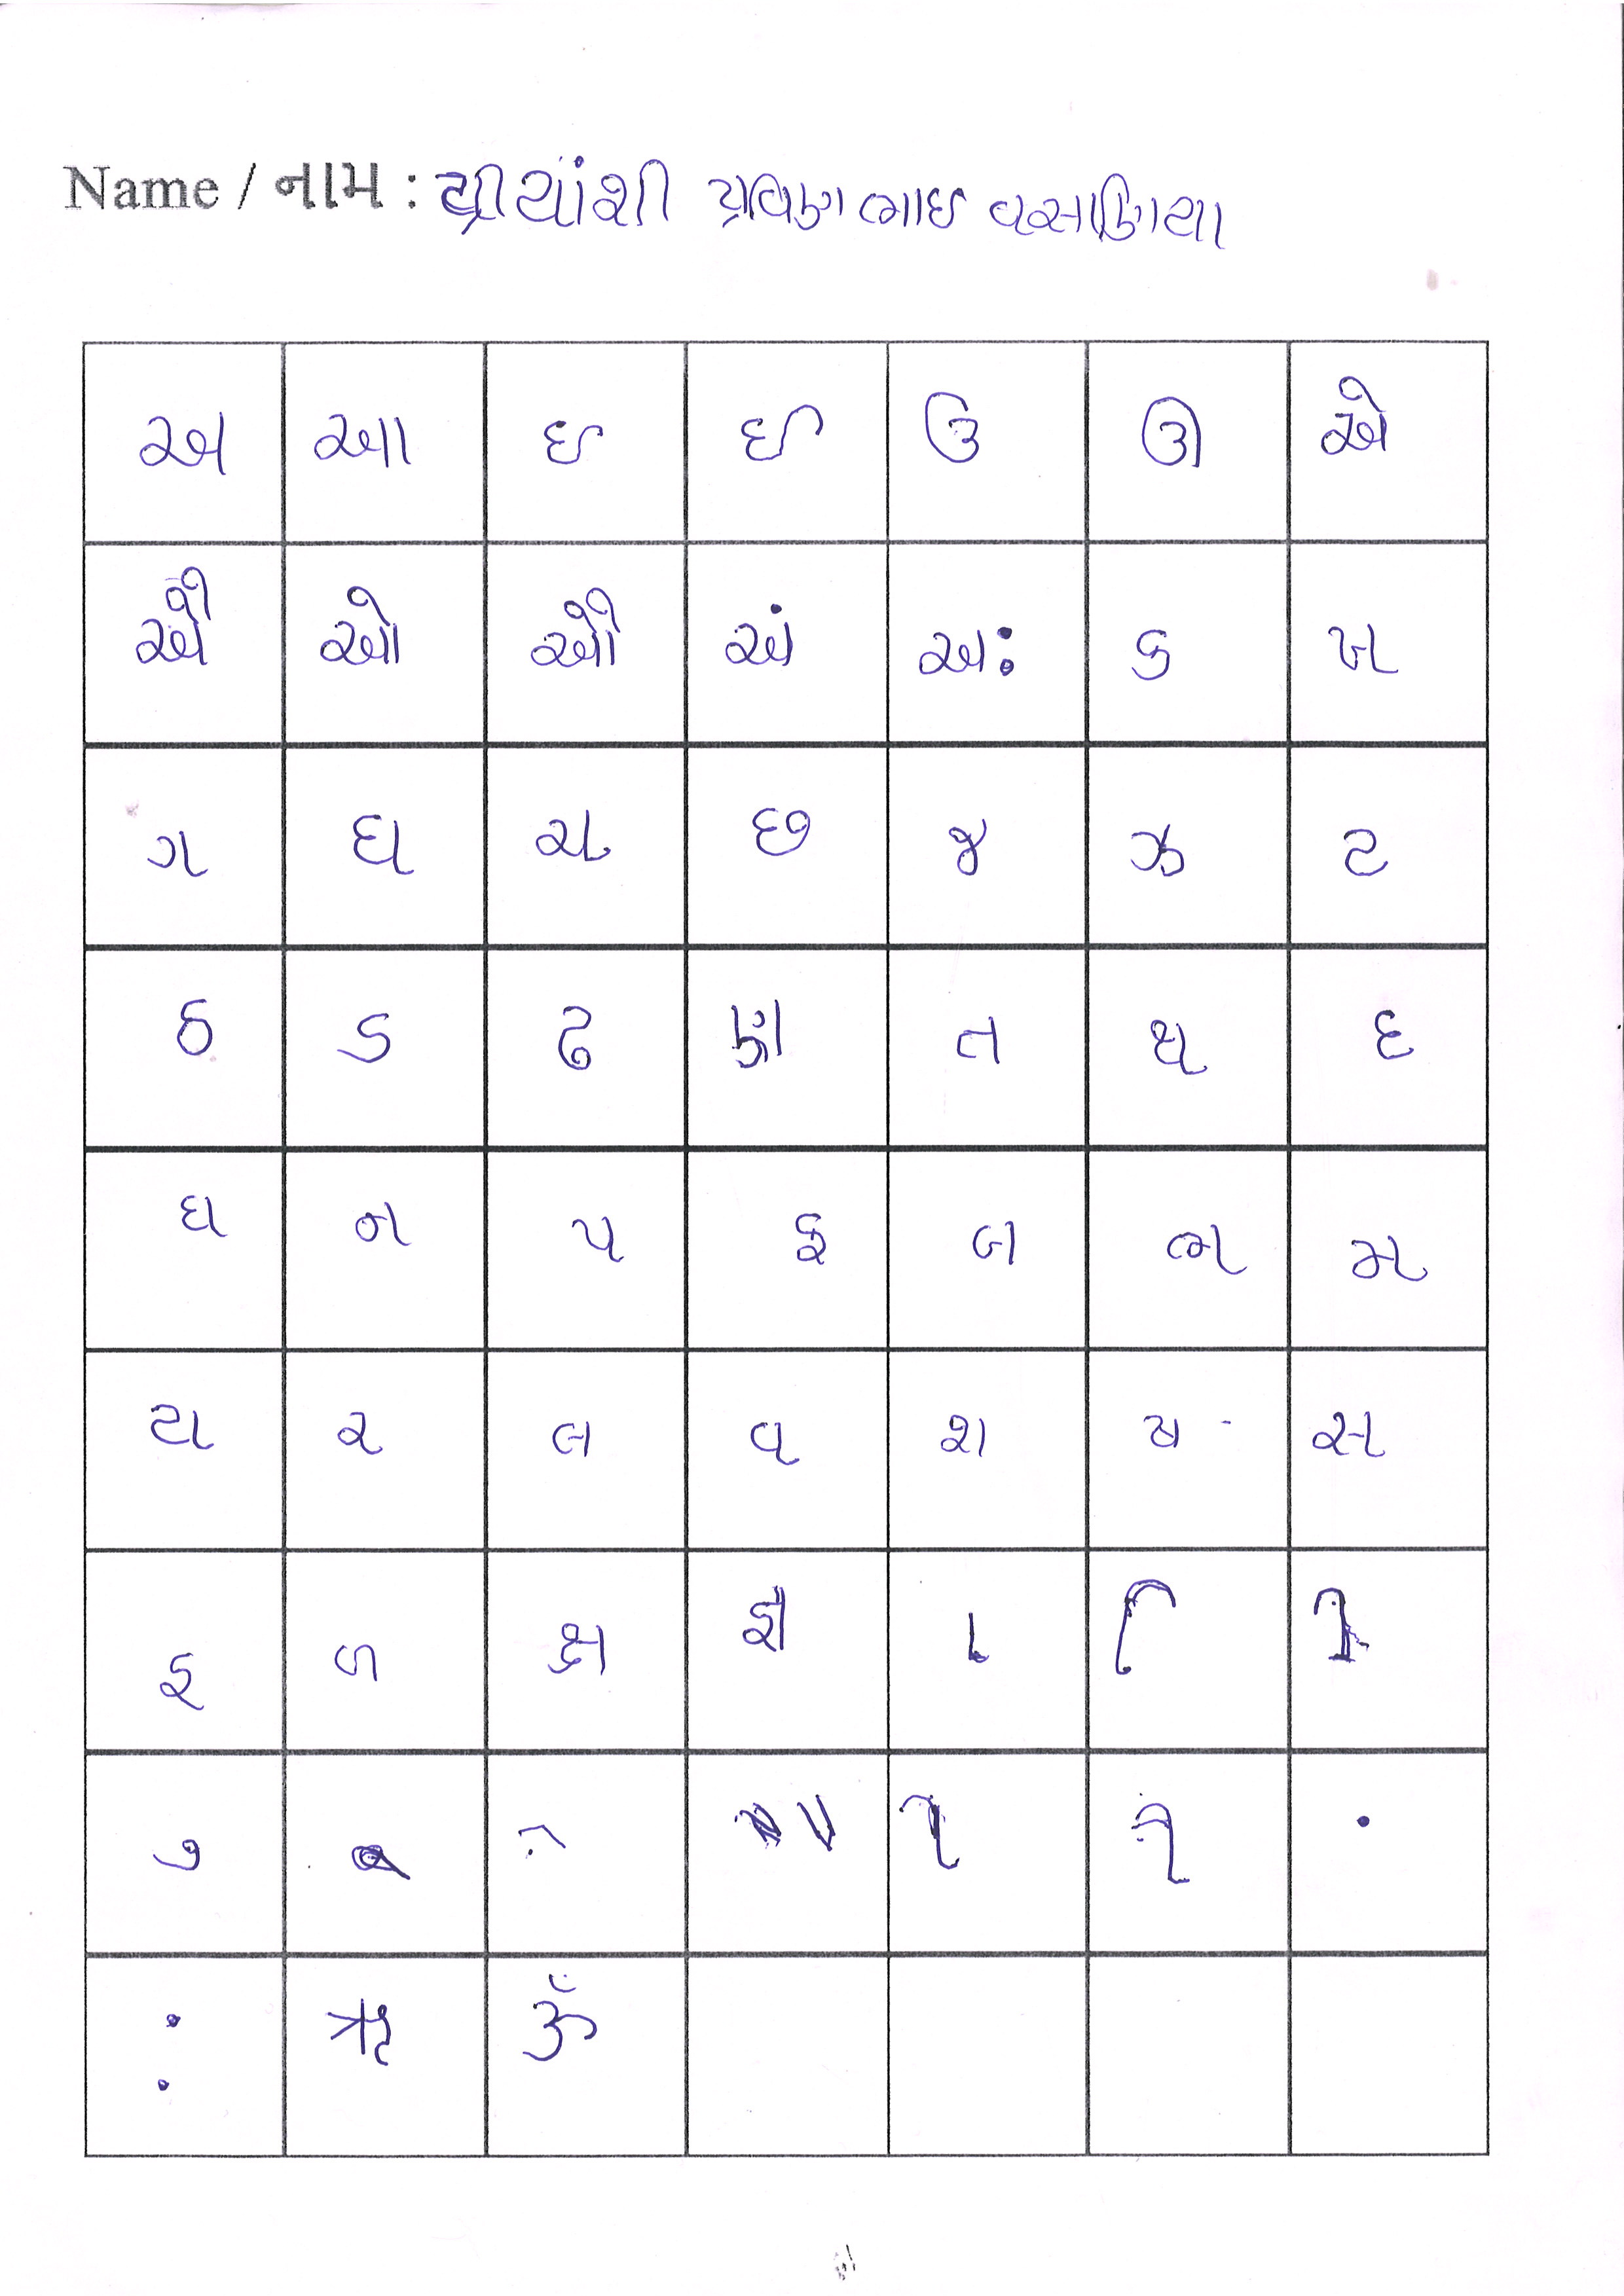 Name / નામ : પ્રીયાંશી પ્રવિણભાઇ વસાણિયા
અ આ ઇ ઈ ઉ ઊ એ
ઐ ઓ ઔ અં અઃ ક ખ
ગ ઘ ચ છ જ ઝ ટ
ઠ ડ ઢ ણ ત થ દ
ધ ન પ ફ બ ભ મ
ય ર લ વ શ ષ સ
હ ળ ક્ષ જ્ઞ ા િ ી
ુ ં
ઃ ઋ ૐ